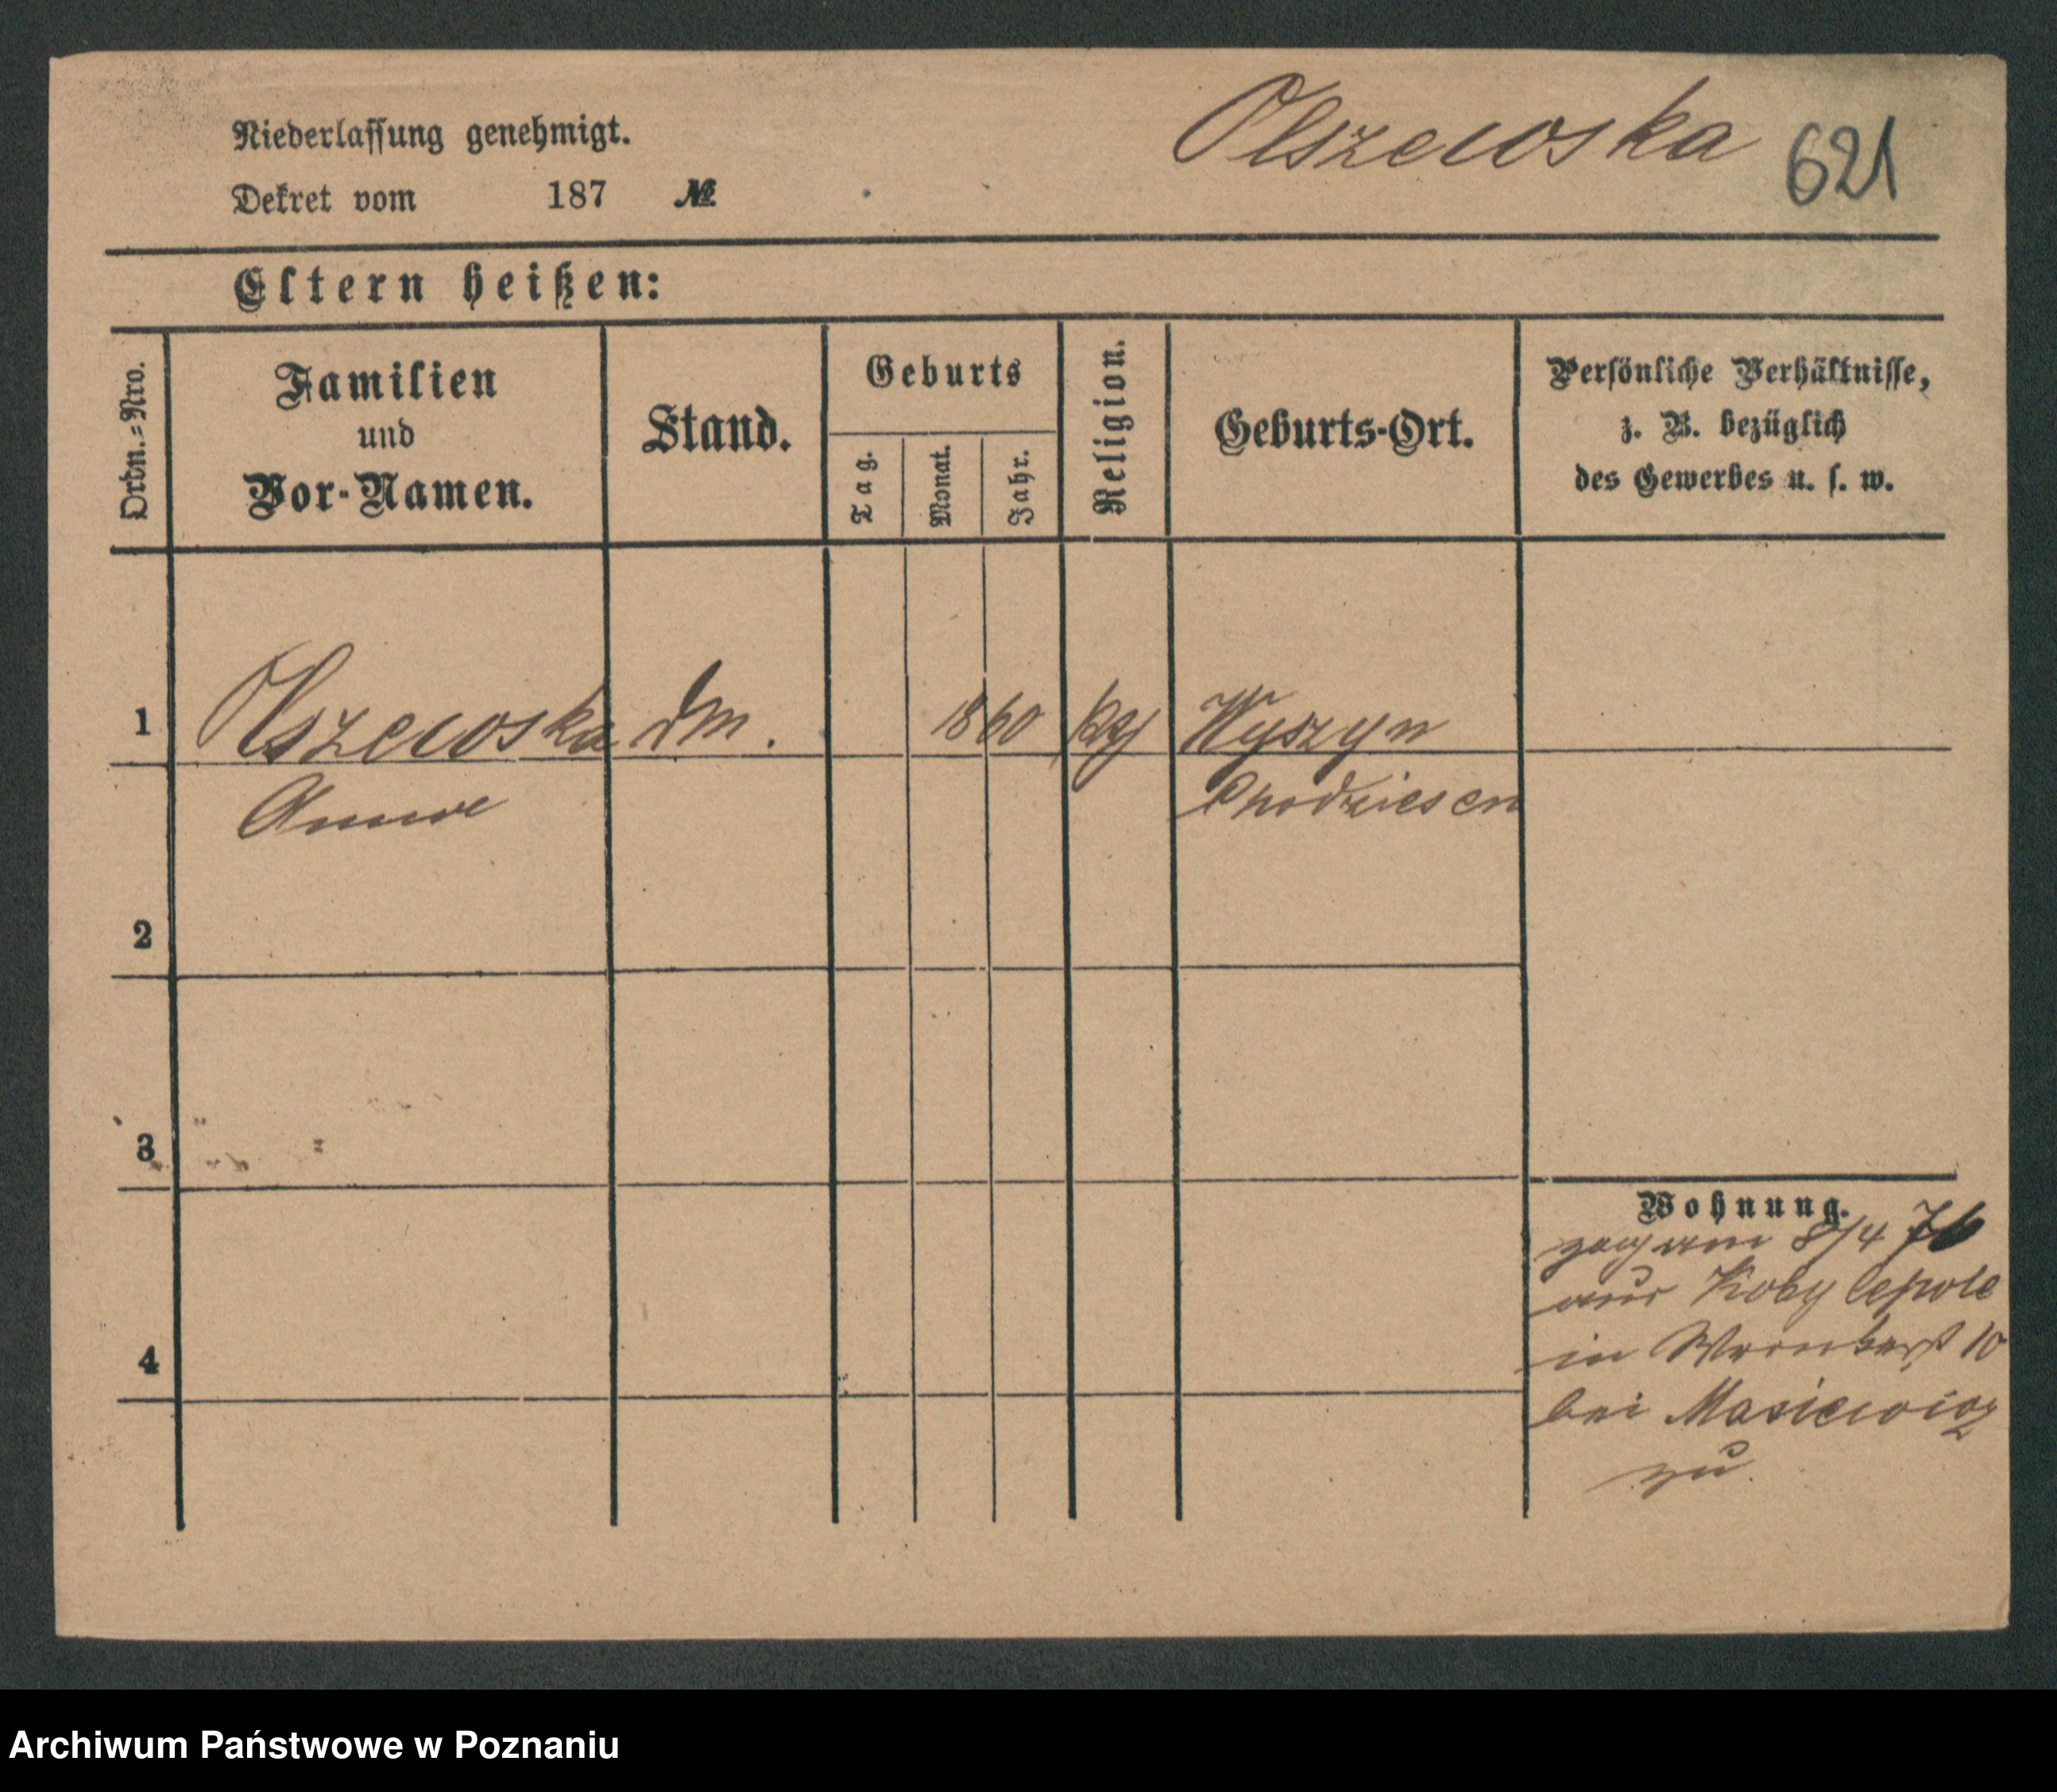 Niederlassung genehmigt.
Olszewska 621
Dekret vom 187 №
Eltern heißen:
Ordn.-Nro.
Familien
und
Vor-Namen.
Stand.
Geburts
Tag.
Monat.
Jahr.
Religion.
Geburts-Ort.
Persönliche Verhältnisse,
z. B. bezüglich
des Gewerbes u. s. w.
1 Olszewska dm. 1860 Wyszyn
Anna Chodziesen
2
3
4
Wohnung.
zog am 8/4 76
aus Kobylepole
in Wronkerst 10
bei Masiewicz
zu.
Archiwum Państwowe w Poznaniu